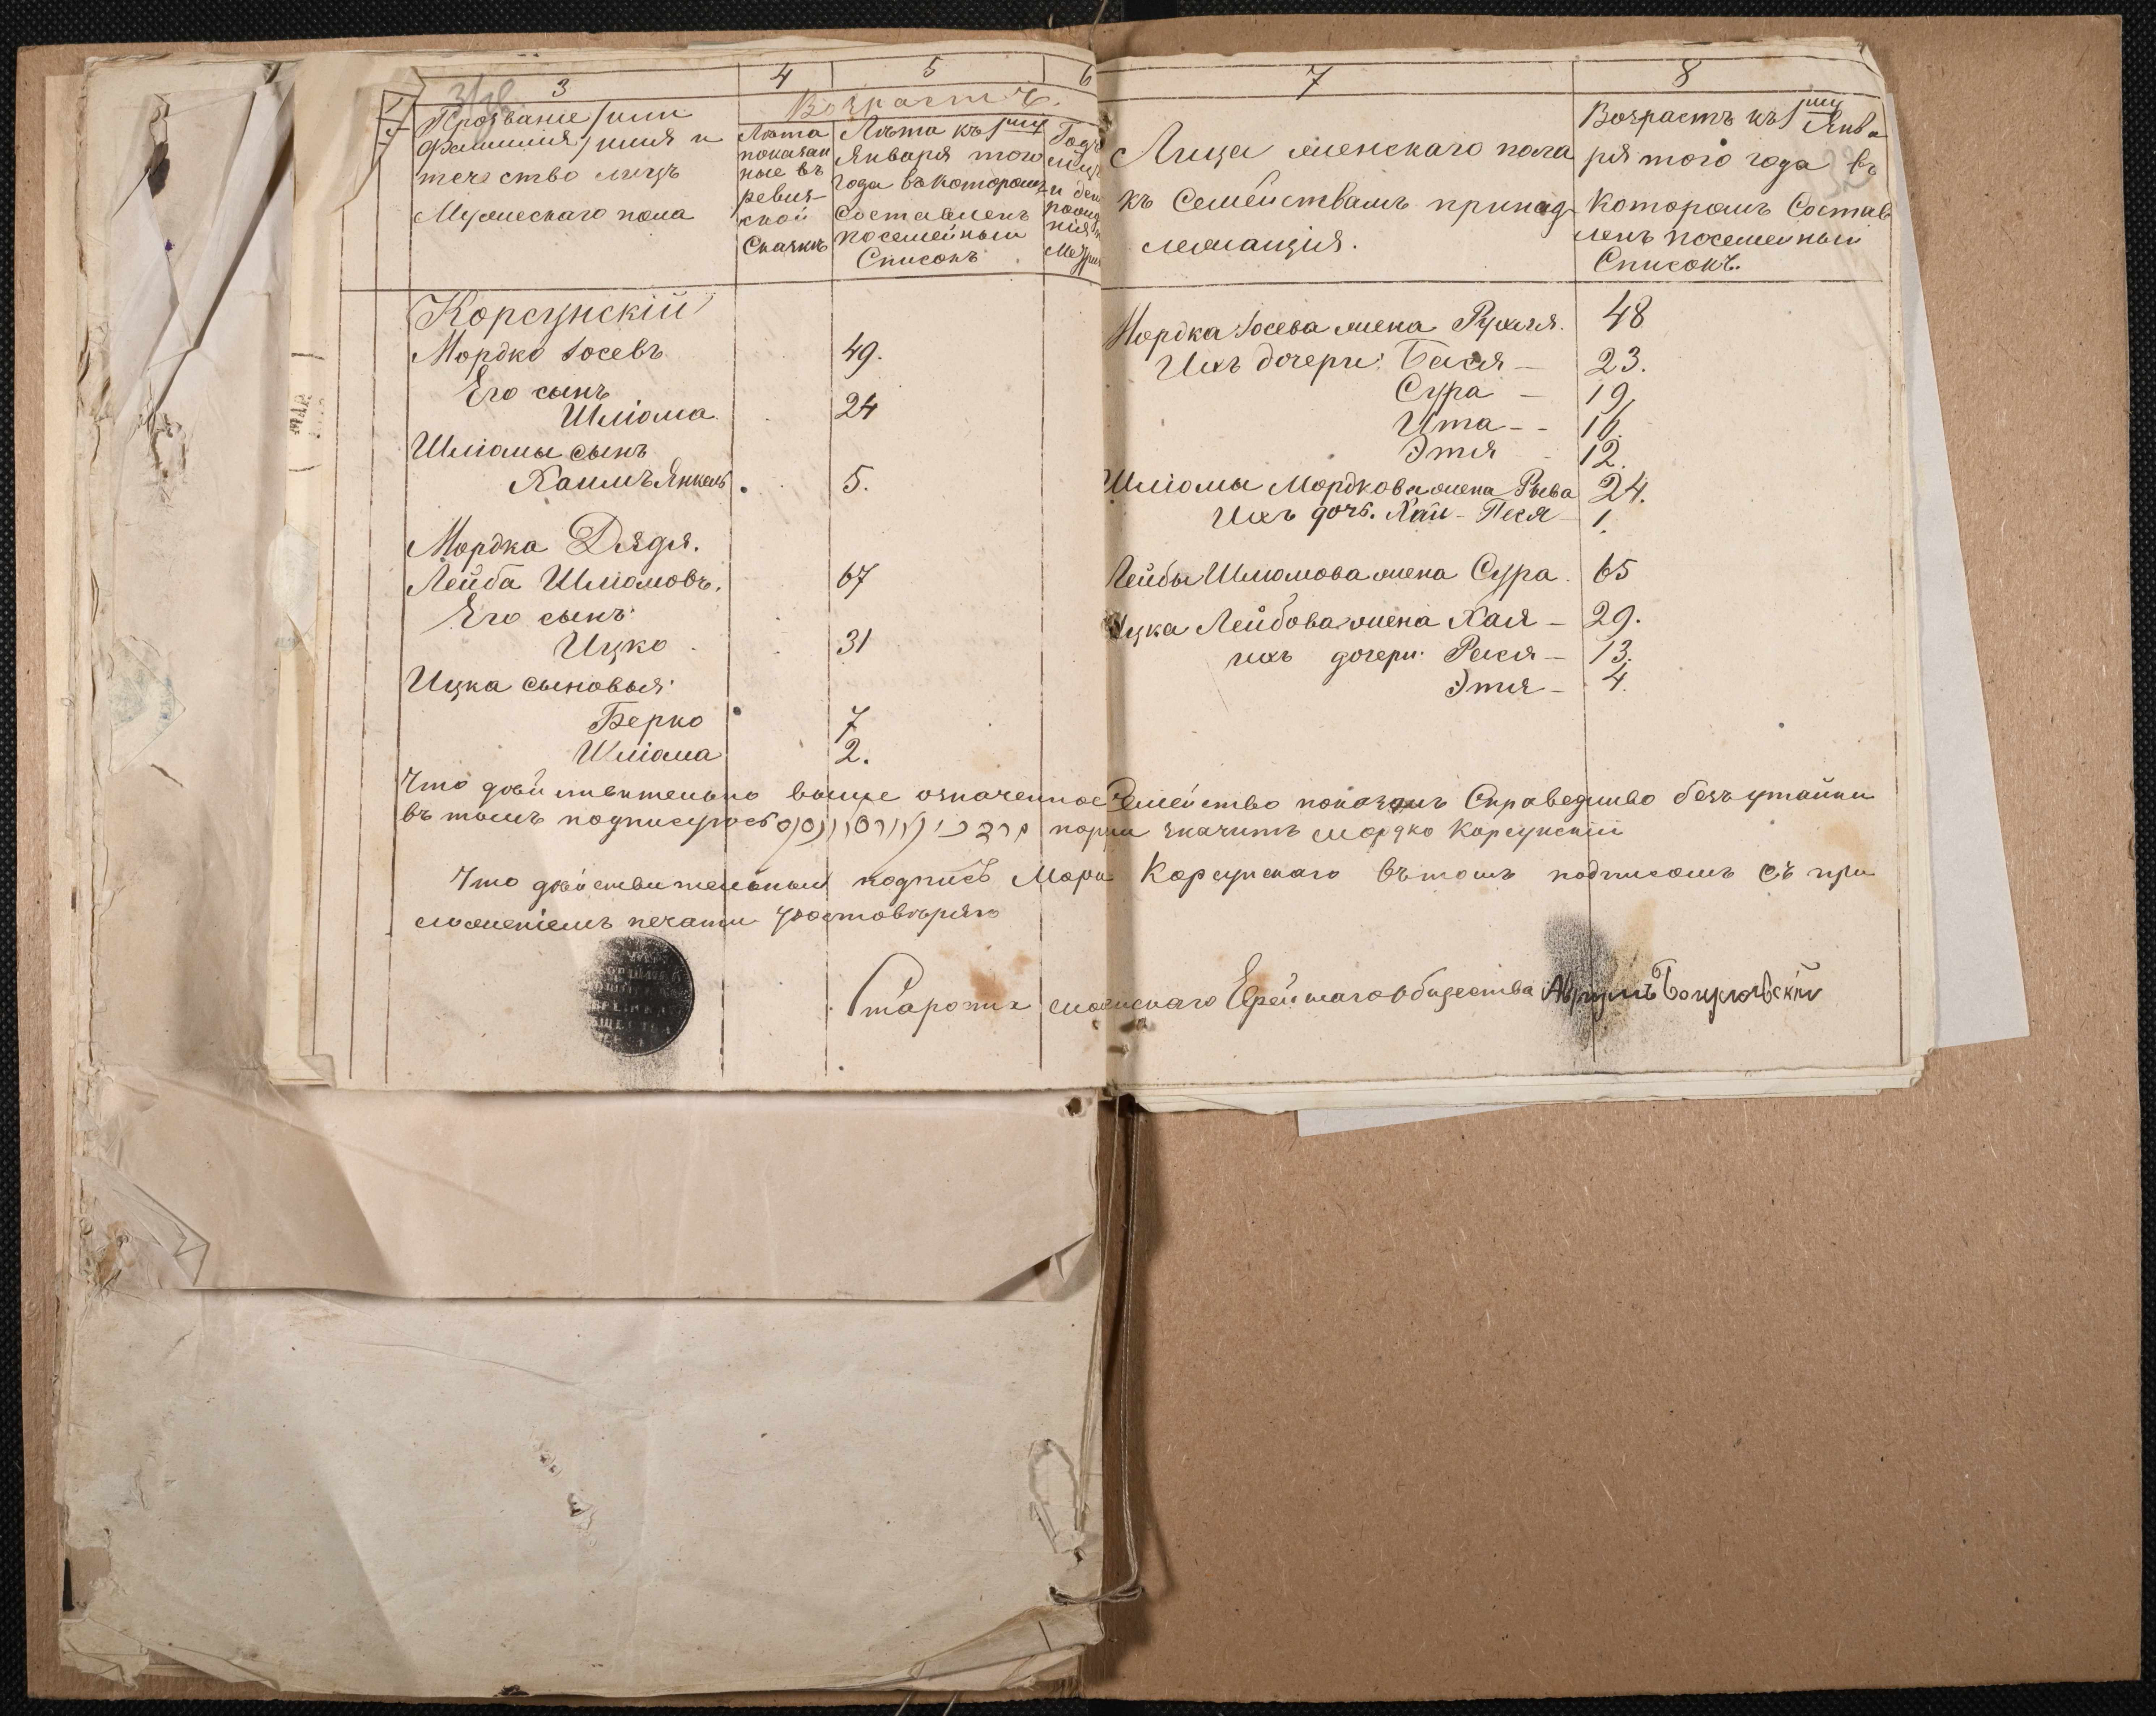 3 4 5 6
Возрастъ.
Прозваніе /или
Фамилія/ имя и
течество лицъ
Мужескаго пола
Лѣта
показан
ные въ
ревиз-
ской
Сказкѣ
Лѣта къ 1му
Января того
года въ которомъ
Составленъ
посемейный
Списокъ
Корсунскій
Мордко Іосевъ 49.
Его сынъ
Шліома 24
Шліомы сынъ
Хаимъ Янкель 5.
Мордка Дядя.
Лейба Шліомовъ. 67
Его сынъ
Ицко 31
Ицка сыновья:
Берко 7
Шліома 2.
7 8
Лица женскаго пола
къ Семействамъ принад
лежащія.
Возрастъ къ 1му Янва
ря того года въ
Которомъ Состав
ленъ посемейный
Списокъ.
Мордка Іосева жена Рухля. 48
Ихъ дочери: Бася 23.
Сура 19.
Ита 16.
Этя 12.
Шліомы Мордкова жена Рыва 24.
Ихъ дочь. Хаи-Песя 1.
Лейбы Шліомова жена Сура. 65
Ицка Лейбова жена Хая 29.
ихъ дочери: Рейзя 13.
Этя 4.
Что дѣйствительно выше означенное Семейство показалъ Справедливо безъ утайки
въ томъ подписуюсь значитъ Мордко Корсунскій
Что дѣйствительный подпись Морд Корсунскаго въ томъ подписомъ съ при
ложеніемъ печати удостовѣряю
Староста Еврейскаго Общества